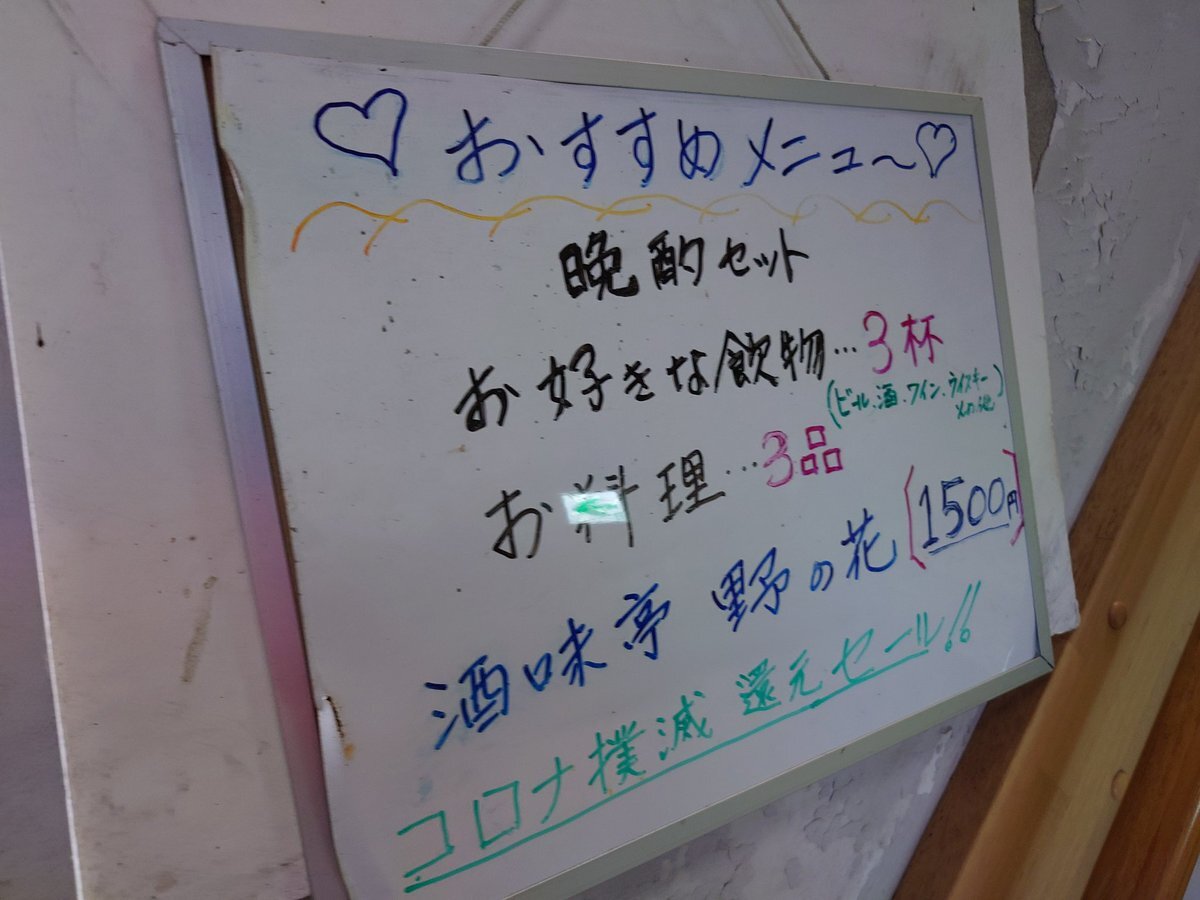 ♡おすすめメニュー♡
晩酌セット
お好きな飲物…3杯
(ビール、酒、ワイン、ウイスキー
その他)
お料理…3品
酒味亭 野の花(1500円)
コロナ撲滅 還元セール!!